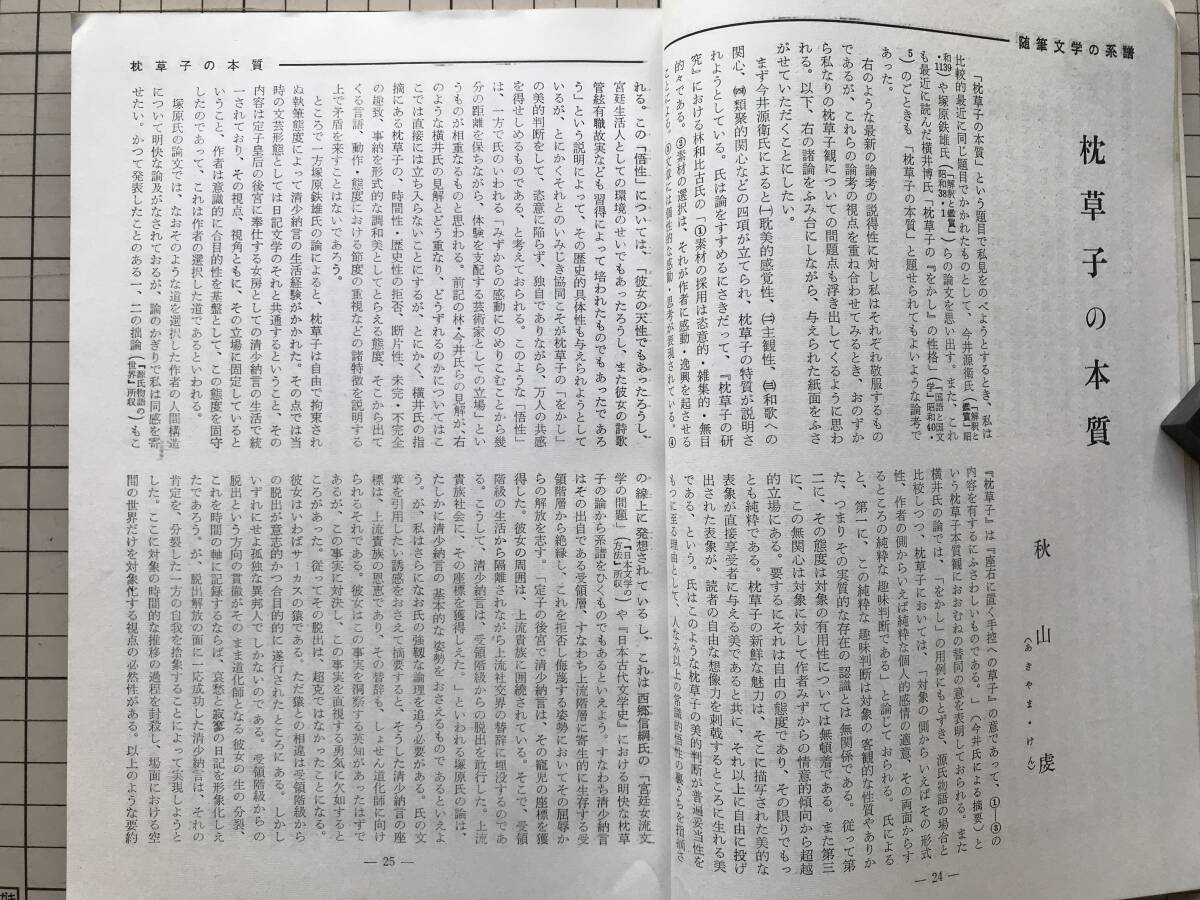 随筆文学の系譜
枕草子の本質
秋山虔
(あきやま・けん)
「枕草子の本質」という題目で私見をのべようとするとき、私は
比較的最近に同じ題目でかかれたものとして、今井源衛氏(「解釈と鑑賞」昭
和39・11)や塚原鉄雄氏(「解釈と鑑賞」昭和38・1)らの論文を思い出す。また、これ
も最近に読んだ横井博氏「枕草子の『をかし』の性格」(「国語と国文学」昭和40・
5)のごときも「枕草子の本質」と題せられてもよいような論考で
あった。
右のような最新の論考の説得性に対し私はそれぞれ敬服するもの
であるが、これらの論考の視点を重ね合わせてみるとき、おのずか
ら私なりの枕草子観についての問題点も浮き出してくるように思わ
れる。以下、右の諸論をふみ台にしながら、与えられた紙面をふさ
がせていただくことにしたい。
まず今井源衛氏によると㈠耽美的感覚性、㈡主観性、㈢和歌への
関心、㈣類聚的関心などの四項が立てられ、枕草子の特質が説明さ
れようとしている。氏は論をすすめるにさきだって、『枕草子の研
究』における林和比古氏の「①素材の採用は恣意的・雑集的・無目
的々である。②素材の選択は、それが作者に感動・逸興を起させる
ことによる。③文章には個性的な感動、思考が表現されている。④
『枕草子』は『座石に置く手控への草子』の意であって、①―③の
内容を有するにふさわしいものである。」(今井氏による摘要)と
いう枕草子本質観におおむねの賛同の意を表明しておられる。また
横井氏の論では、「をかし」の用例にもとずき、源氏物語の場合と
比較しつつ、枕草子においては、「対象の側からいえばその形式
性、作者の側からいえば純粋な個人的感情の適意、その両面からす
るところの純粋な趣味判断である」と論じておられる。氏による
と、第一に、この純粋な趣味判断は対象の客観的な性質やありか
た、つまりその実質的な存在の認識とは無関係である。従って第
二に、その態度は対象の有用性については無頓着である。また第三
に、この無関心は対象に対して作者みずからの情意的傾向から超越
的立場にある。要するにそれは自由の態度であり、その限りでもっ
とも純粋である。枕草子の新鮮な魅力は、そこに描写された美的な
表象が直接享受者に与える美であると共に、それ以上に自由に投げ
出された表象が、読者の自由な想像力を刺戟するところに生れる美
である、という。氏はこのような枕草子の美的判断が普遍妥当性を
もつに至る理由として、人なみ以上の常識的悟性の働らきを指摘さ
— 24 —
枕草子の本質
れる。この「悟性」については、「彼女の天性でもあったろうし、
宮廷生活人としての環境のせいでもあったろうし、また彼女の詩歌
管絃有職故実なども習得によって培われたものでもあったであろ
う」という説明によって、その歴史的具体性も与えられようとして
いるが、とにかくそれとのいみじき協同こそが枕草子の「をかし」
の美的判断をして、恣意に陥らず、独自でありながら、万人の共感
を得せしめるものである、と考えておられる。このような「悟性」
は、一方で氏のいわれる「みずからの感動にのめりこむことから幾
分の距離を保ちながら、体験を支配する芸術家としての立場」とい
うものが相重なるものと思われる。前記の林・今井氏らの見解が、右
のような横井氏の見解とどう重なり、どうずれるのかについてはこ
こでは直接には立ち入らないことにするが、とにかく、横井氏の指
摘にある枕草子の、時間性・歴史性の拒否、断片性、未完・不完全
の趣致、事納を形式的な調和美としてとらえる態度、そこから出て
くる言語、動作・態度における節度の重視などの諸特徴を説明する
上で矛盾を来すことはないであろう。
ところで一方塚原鉄雄氏の論によると、枕草子は自由で拘束され
ぬ執筆態度によって清少納言の生活経験がかかれた。その点では当
時の文芸形態としては日記文学のそれと共通するということ、その
内容は定子皇后の後宮に奉仕する女房としての清少納言の生活で統
一されており、その視点、視角ともに、その立場に固定していると
いうこと、作者は意識的に合目的性を基盤として、この態度を固守
したのであって、これは作者の選択した道であるといわれる。
塚原氏の論文では、なおそのような道を選択した作者の人間構造
について明快な論及がなされておるが、論のかぎりで私は同感を寄
せたい。かつて発表したことのある一、二の拙論(『源氏物語の世界』所収)もこ
の線上に発想されているし、これは西郷信綱氏の「宮廷女流文
学の問題」(『日本文学の方法』所収)や『日本古代文学史』における明快な枕草
子の論から系譜をひくものでもあるといえよう。すなわち清少納言
はその出自である受領層、すなわち上流階層に寄生的に生存する受
領階層から絶縁し、これを拒否し侮蔑する姿勢においてその屈辱か
らの解放を志す。「定子の後宮で清少納言は、その寵児の座標を獲
得した。彼女の周囲は、上流貴族に囲繞されている。そこで、受領
階級の生活から隔離されながら上流社交界の替辞に埋没するのであ
る。こうして、清少納言は、受領階級からの脱出を敢行した。上流
貴族社会に、その座標を獲得しえた。」といわれる塚原氏の論は、
たしかに清少納言の基本的な姿勢をおさえるものであるといえよ
う。が、私はさらになお氏の強靱な論理を追う必要がある。氏の文
章を引用したい誘惑をおさえて摘要すると、そうした清少納言の座
標は、上流貴族の恩恵であり、その替辞も、しょせん道化師に向け
られるそれである。彼女はこの事実を洞察する英知があったはずで
あるが、この事実に対決し、この事実を直視する勇気に欠如すると
ころがあった。従ってその脱出は、超克ではなかったことになる。
彼女はいわばサーカスの猿である。ただ猿との相違は受領階級から
の脱出が意志的かつ合目的的に遂行されたところにある。しかし
いずれにせよ孤独な異邦人でしかないのである。受領階級からの
脱出という方向の貫徹がそのまま道化師となる彼女の生の分裂、
これを時間の軸に記録するならば、哀愁と寂寥の日記を形象化しえ
たであろう。が、脱出解放の面に一応成功した清少納言は、それの
肯定を、分裂した一方の自我を捨象することによって実現しようと
した。ここに対象の時間的な推移の過程を封殺し、場面における空
間の世界だけを対象化する視点の必然性がある。以上のような要約
— 25 —